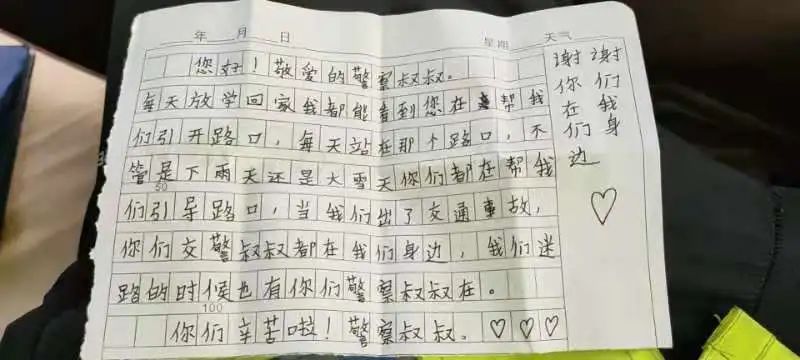 年 月 日 星期 天气
您好！敬爱的警察叔叔。
每天放学回家我都能看到您在帮我
们引开路口，每天站在那个路口，不
管是下雨天还是大雪天你们都在帮我
50
们引导路口，当我们出了交通事故，
你们交警叔叔都在我们身边，我们迷
路的时候也有你们警察叔叔在。
100
你们辛苦啦！警察叔叔。♡♡♡
谢谢
你们
在我
们身
边
♡